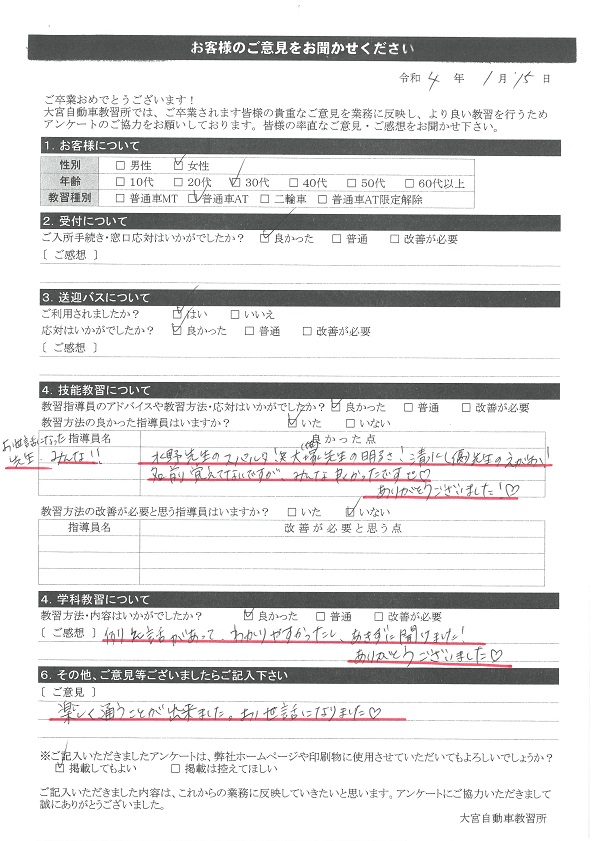 お客様のご意見をお聞かせください
令和 4 年 1 月 15 日
ご卒業おめでとうございます！
大宮自動車教習所では、ご卒業されます皆様の貴重なご意見を業務に反映し、より良い教習を行うため
アンケートのご協力をお願いしております。皆様の率直なご意見・ご感想をお聞かせ下さい。
1. お客様について
性別 □ 男性 ☑ 女性
年齢 □ 10代 □ 20代 ☑ 30代 □ 40代 □ 50代 □ 60代以上
教習種別 □ 普通車MT ☑ 普通車AT □ 二輪車 □ 普通車AT限定解除
2. 受付について
ご入所手続き・窓口応対はいかがでしたか？ ☑ 良かった □ 普通 □ 改善が必要
[ ご感想 ]
3. 送迎バスについて
ご利用されましたか？ ☑ はい □ いいえ
応対はいかがでしたか？ ☑ 良かった □ 普通 □ 改善が必要
[ ご感想 ]
4. 技能教習について
教習指導員のアドバイスや教習方法・応対はいかがでしたか？ ☑ 良かった □ 普通 □ 改善が必要
教習方法の良かった指導員はいますか？ ☑ いた □ いない
指導員名 良かった点
お世話になった
先生 みんな!!
水野先生のスパルタ! 大塚先生の明るさ! 先生のえがお!
名前覚えてないですが、みんな良かったです♡
ありがとうございました!♡
教習方法の改善が必要と思う指導員はいますか？ □ いた ☑ いない
指導員名 改善が必要と思う点
4. 学科教習について
教習方法・内容はいかがでしたか？ ☑ 良かった □ 普通 □ 改善が必要
[ ご感想 ] 例え話があって、わかりやすかったし、あきずに聞けました!
ありがとうございました♡
6. その他、ご意見等ございましたらご記入下さい
[ ご意見 ]
楽しく通うことが出来ました。お世話になりました♡
※ご記入いただきましたアンケートは、弊社ホームページや印刷物に使用させていただいてもよろしいでしょうか？
☑ 掲載してもよい □ 掲載は控えてほしい
ご記入いただきました内容は、これからの業務に反映していきたいと思います。アンケートにご協力いただきまして
誠にありがとうございました。
大宮自動車教習所